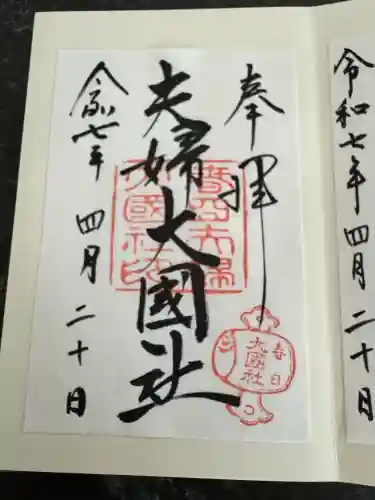 奉拝
夫婦大國社
春日
大國社
令和七年 四月 二十日
令和七年四月二十日